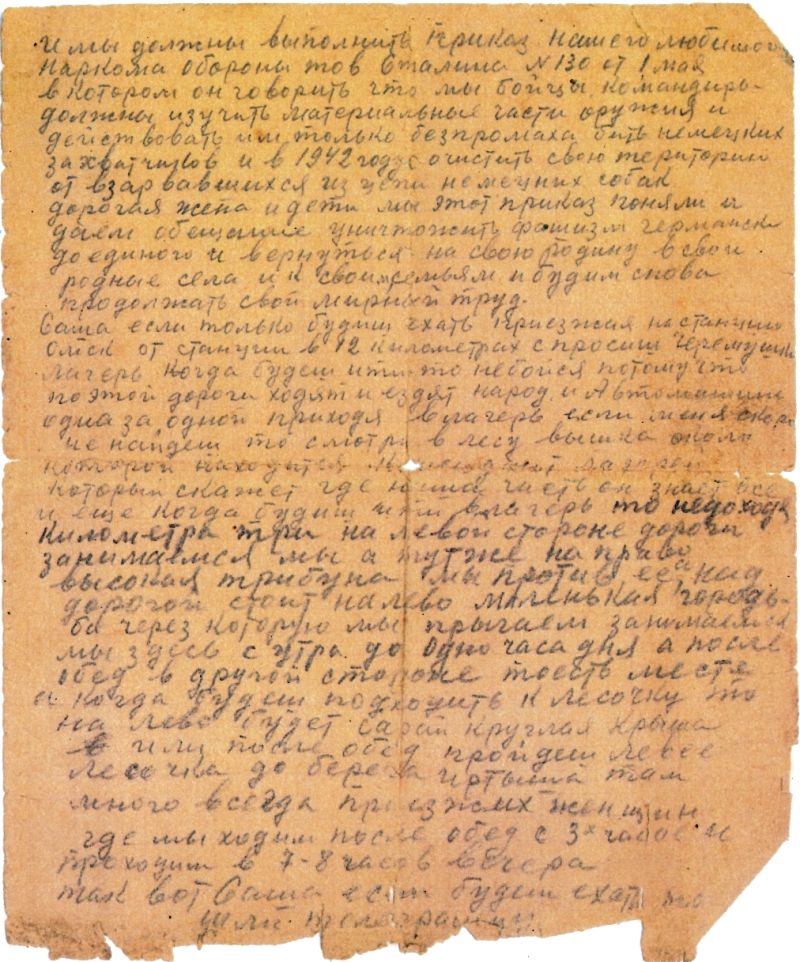 и мы должны выполнить приказ нашего любимого
наркома обороны тов Сталина N130 от 1 мая
в котором он говорить что мы бойцы, командиры-
должны изучить материальные части оружия и
действовать им только безпромаха бить немецких
захватчиков и в 1942 году очистить свою територию
от взарвавшихся из цепи немецких собак
дорогая жена и дети мы этот приказ поняли и
даем обещание уничтожить фашизм германски
до единого и вернуться на свою родину в свои
родные села и к своим семьям и будим снова
продолжать свой мирный труд.
Саша если только будиш ехать приезжая на станцию
Омск от станции в 12 километрах с просиш Черемушки
лагерь когда будеш итти то небойся потому что
по этой дороги ходят и ездят народ и Автомашины
одна за одной приходя в лагерь если меня скоро
не найдеш то смотри в лесу вышка около
которой находится
который скажет где наша часть он знает все
и еще когда будиш итти в лагерь то недоходя
километра три на левой стороне дороги
занимаемся мы а тут же на право
высокая трибуна мы против ее, а над
дорогой стоит налево маленькая городь-
ба через которую мы прыгаем занимаемся
мы здесь с утра до одно часа дня а после
обед в другой стороне тоесть месте
а когда будеш подходить к лесочку то
на лево будет сарай круглая крыша
в или после обед пройдеш левее
лесочка до берега иртыша там
много всегда приезжих женщин
где мы ходим после обед с 3х часов и
проходим в 7-8 часов вечера
так вот Саша если будеш ехать то
шли телеграмму